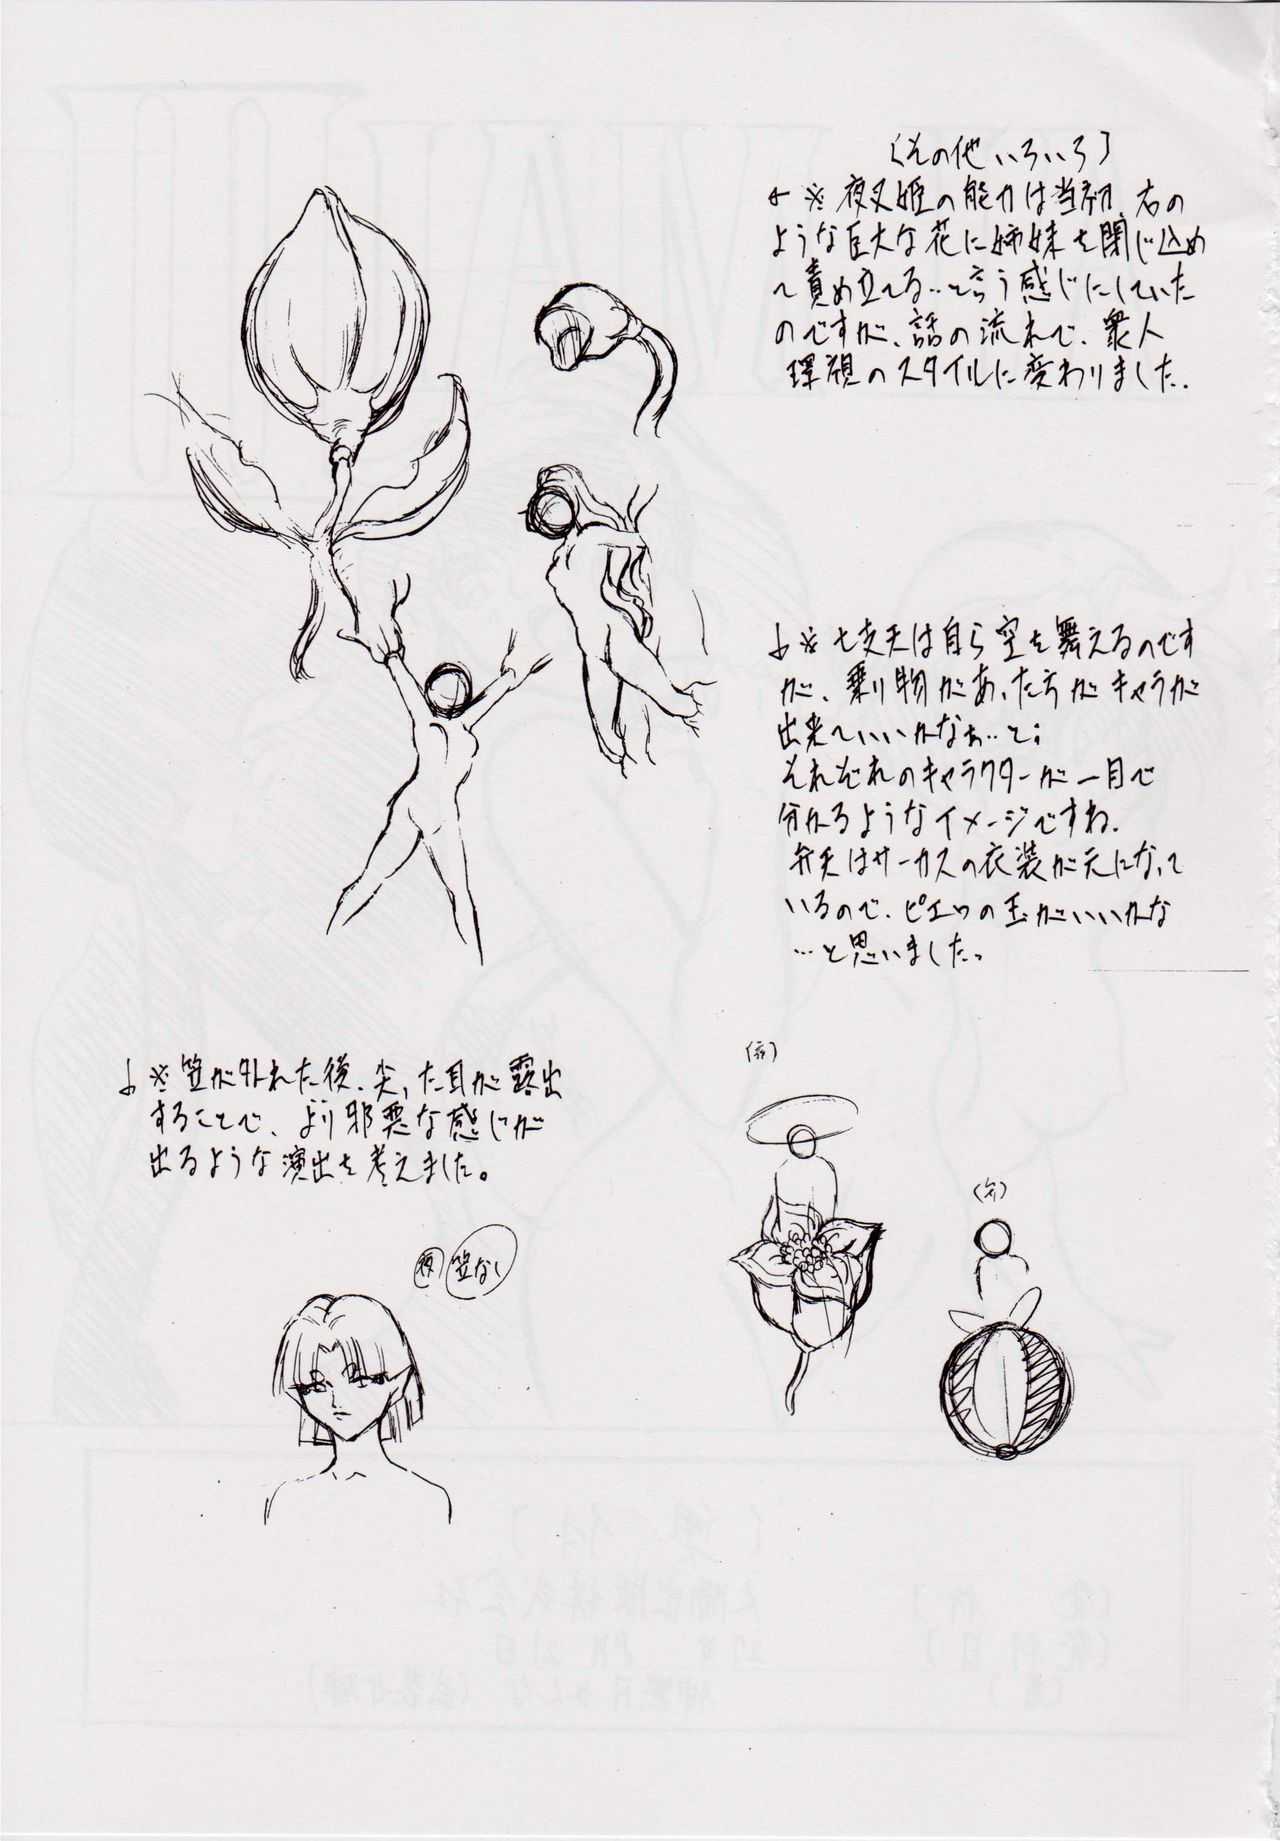 〔その他いろいろ〕
←※夜叉姫の能力は当初、右の
ような巨大な花に姉妹を閉じ込め
て責め立てる…と言う感じにしていた
のですが、話の流れで、衆人
環視のスタイルに変わりました。
↓※七支天は自ら空を舞えるのです
が、乗り物があったらがキャラが
出来ていいかなぁ…と;
それぞれのキャラクターが一目で
分かるようなイメージですね.
弁天はサーカスの衣装が元になって
いるので、ピエロの玉がいいかな
…と思いました。
↓※笠が外れた後、尖った耳が露出
することで、より邪悪な感じが
出るような演出を考えました。
夜 笠なし